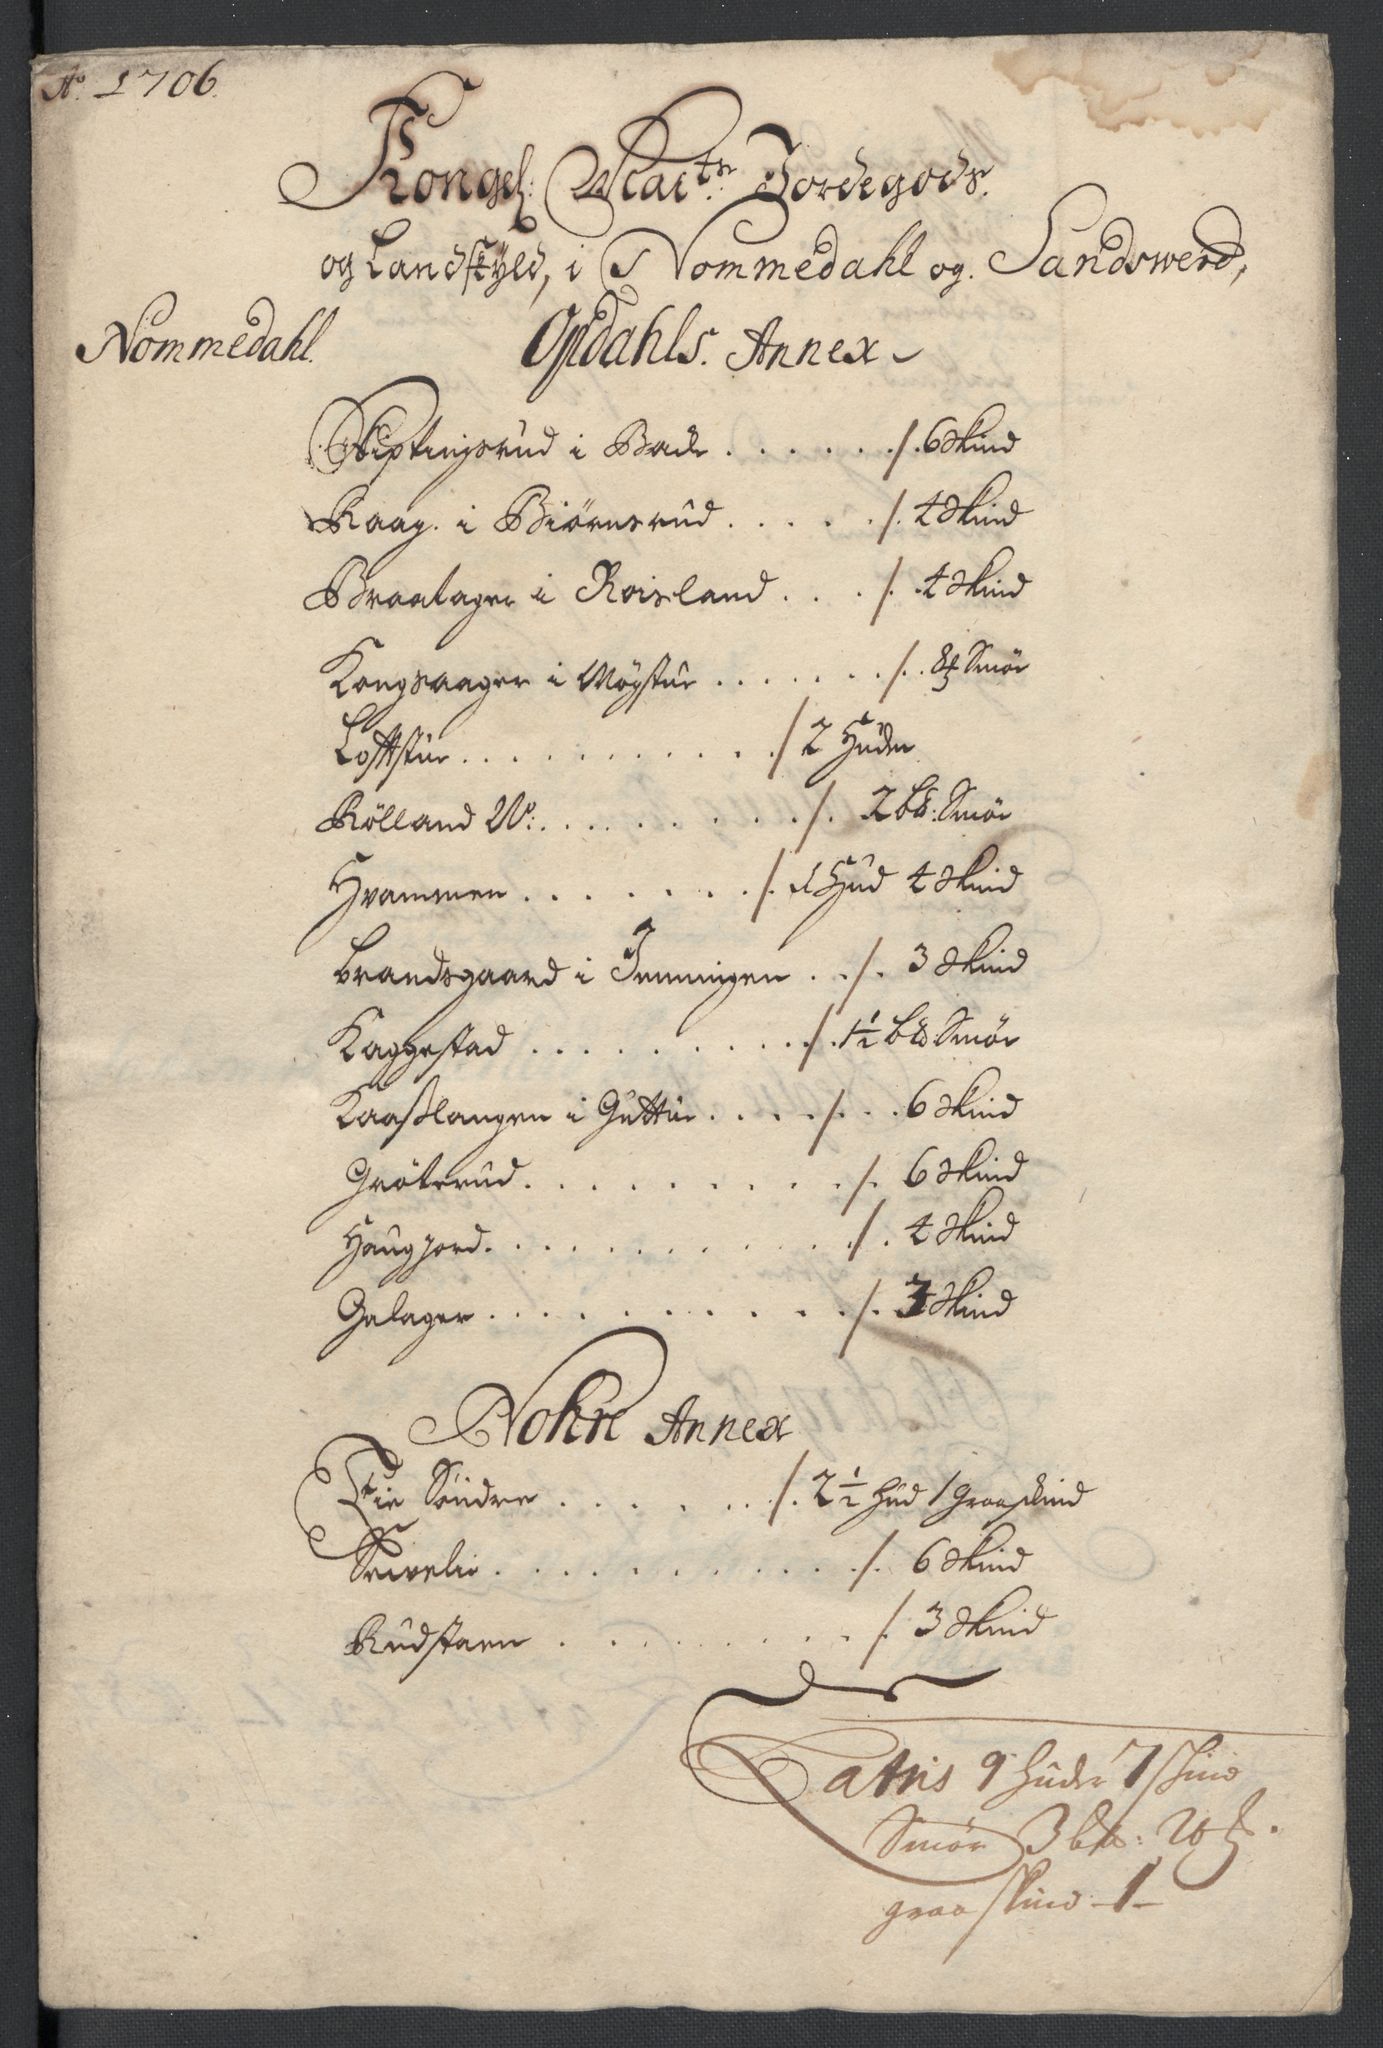 Ao. 1706.
Kongel: Maits: Jordegods.
og Landskyld, i Nommedahl og Sandswerd,
Nommedahl. Opdahls. Annex
Skiptingsrud i Bache ...... /. 6 Skind
Raag. i Biørnsrud ..... /. 4 Skind
Braatager i Roisland .... /. 4 Skind
Kongsaager i Møgstue ...... /. 8 ℔ Smør
Loftstue ........... / 2 Huder
Rölland W: ......... /. 2 bℓ: Smør
Hvammen ....... /. 1 Hud 4 Skind
Brandsgaard i Jenningen .. /. 3 Skind
Kaggestad .......... /. 1½ bℓ: Smør
Kaasslangen i Guttue .... /. .. 6 Skind
Gröterud .......... /. 6 Skind
Haugjord ............ /. 4 Skind
Galager ........... /. 3 Skind
Nohre Annex
Eie Söndre ....... /. 2½ Hud 1 graaskind
Sevelie ........... /. 6 Skind
Rudstaen ......... /. 3 Skind
Latris 9 huder 7 skind
Smør 3 bℓ: 20 ℔.
graaskind - 1 -